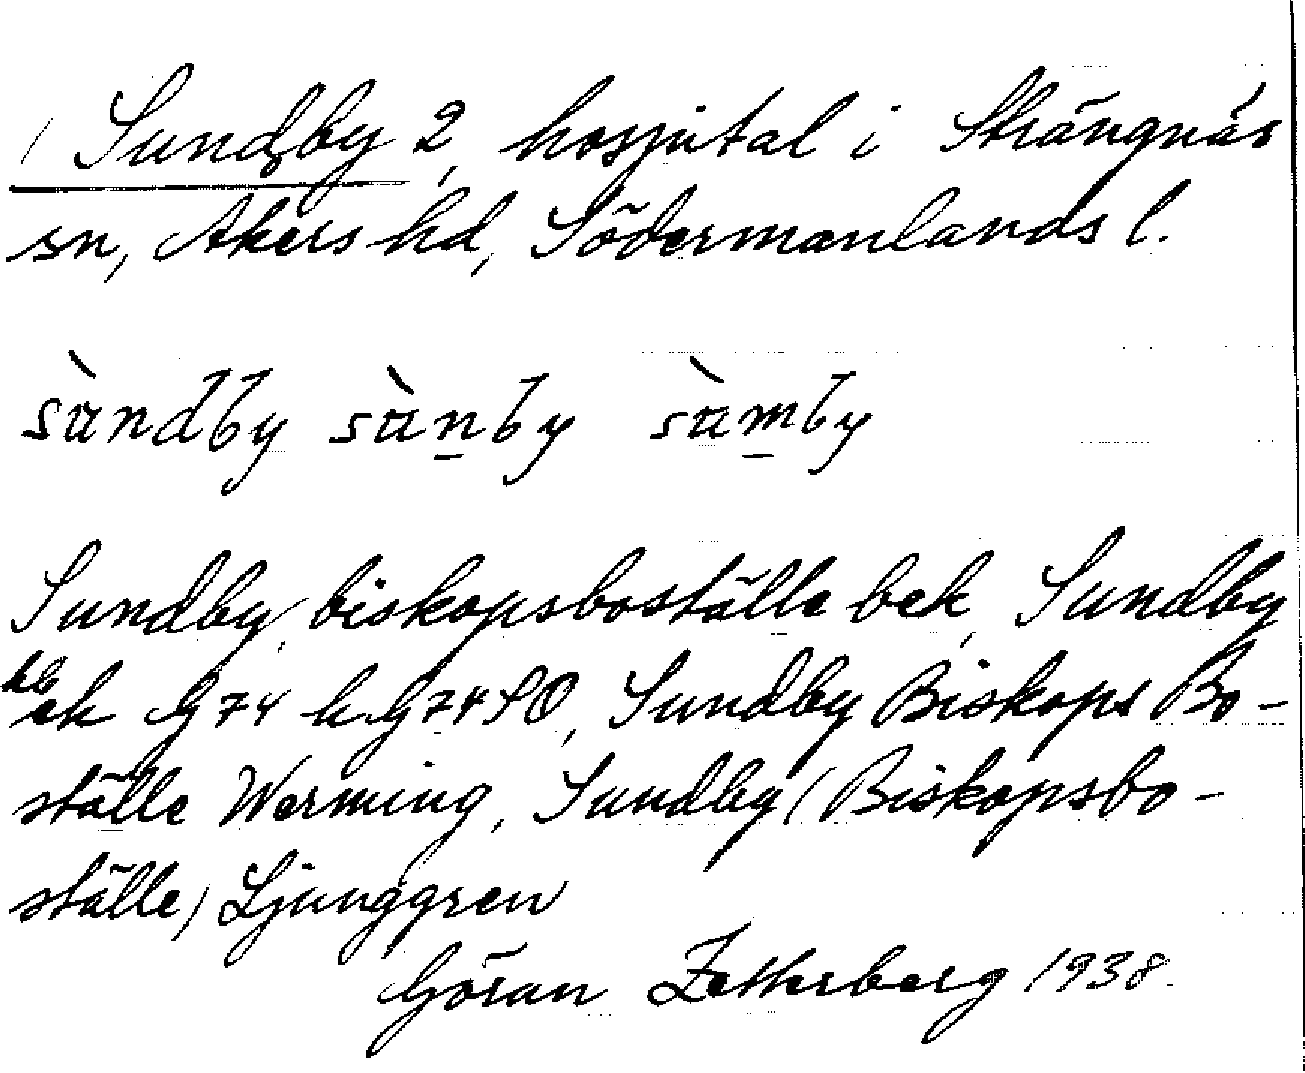 Sundby 2, hospital i Strängnäs
sn, Åkers hd, Södermanlands l.
sùndby sùnby sùmby
Sundby, biskopsboställe bek, Sundby
ek G74 h. G74 SO, Sundby Biskops Bo-
ställe Werming, Sundby (Biskopsbo-
ställe) Ljunggren
Göran Zetterberg 1938.